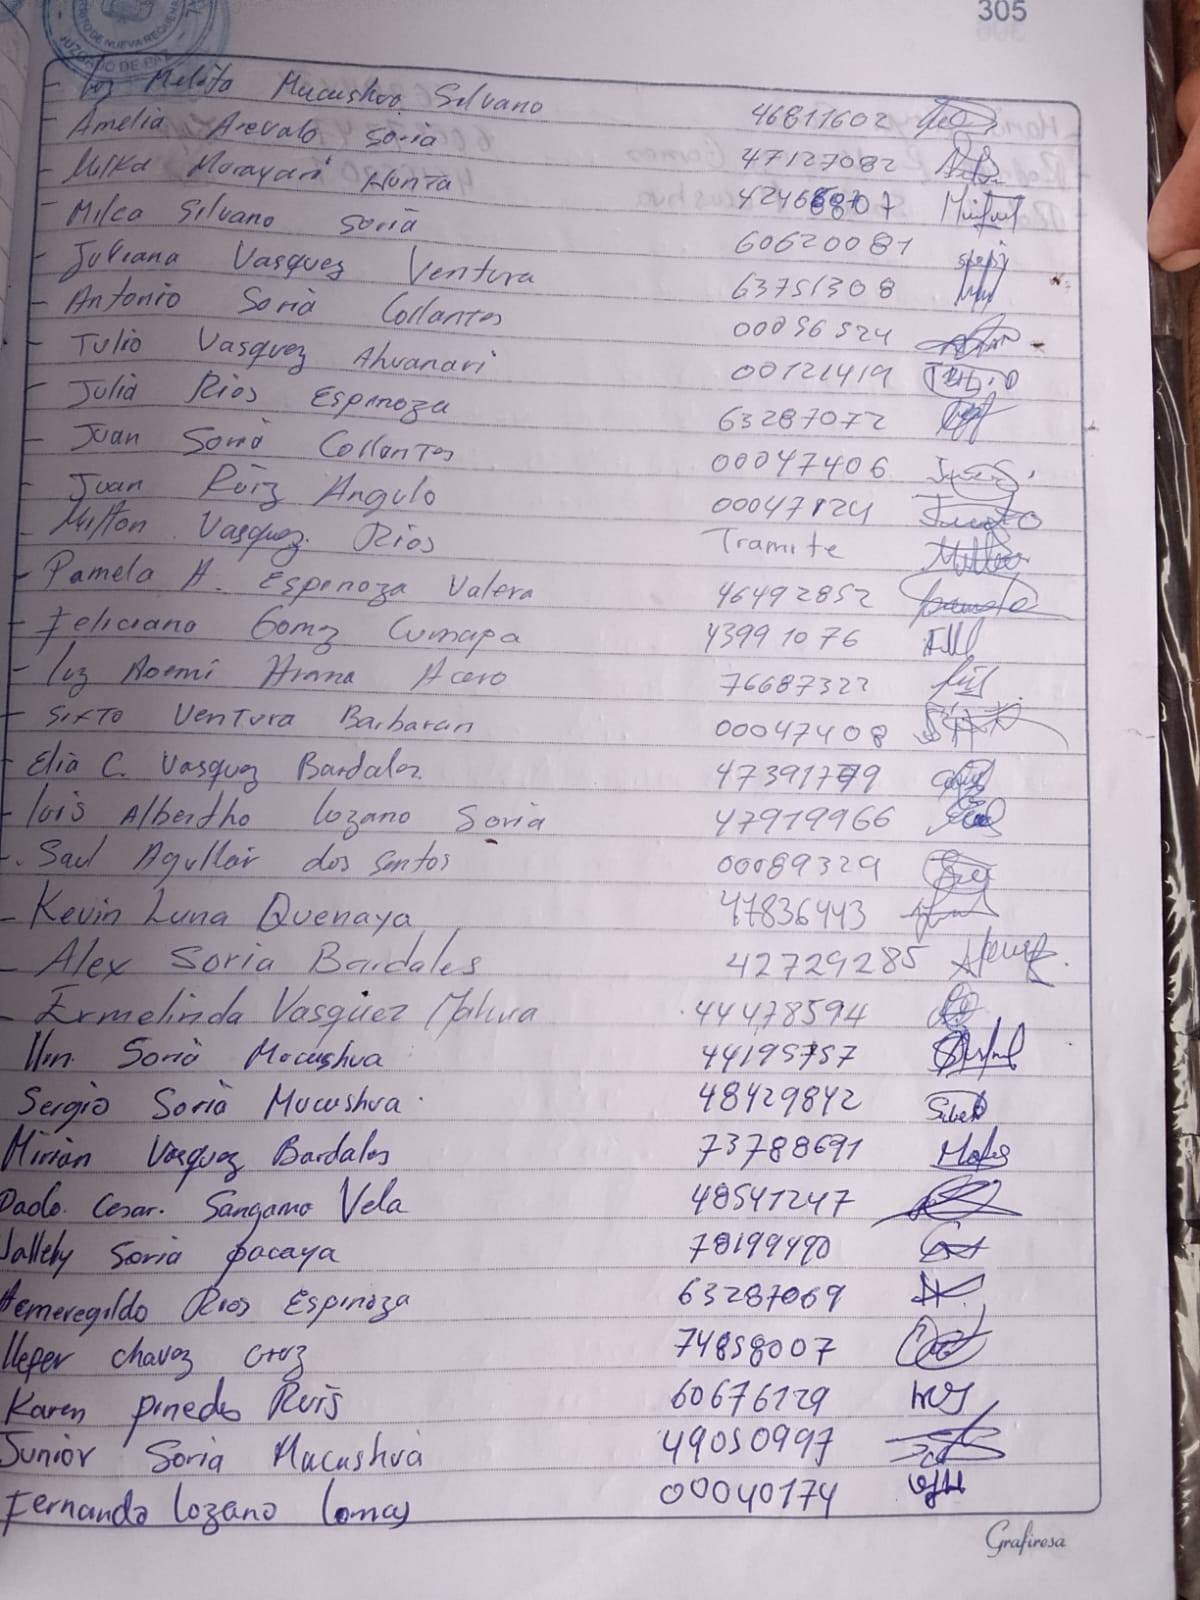 305
DE NUEVA REQUENA
JUZGADO DE PAZ
- Luz Melita Mucushua Silvano 46811602
Amelia Arevalo Soria 47127082
- Milka Morayari Nunta
- Milca Silvano Soria 60620081
- Juliana Vasquez Ventura 63751308
- Antonio Soria Collantes 00056524
- Tulio Vasquez Ahuanari 00121419
- Julia Rios Espinoza 63287072
- Juan Soria Collantes 00047406
- Juan Ruiz Angulo 00047824
- Milton Vasquez Rios Tramite
- Pamela A. Espinoza Valera 46492852
- Feliciano Gomez Cumapa 43991076
- Luz Noemi Acero 76687322
- Sixto Ventura Barbaran 00047408
- Elia C. Vasquez Bardales
- Luis Albertho Lozano Soria 47919966
- Saul Agullar dos Santos 00089329
- Kevin Luna Quenaya 47836443
- Alex Soria Bardales 42729285
- Ermelinda Vasquez Mahua 44478594
Soria Mucushua 44195757
Sergio Soria Mucushua 48429842
Mirian Vasquez Bardales 73788691
Paolo Cesar. Sangama Vela 48541247
Jallely Soria pacaya 78199490
Hemeregildo Rios Espinoza 63287069
chavez cruz 74858007
Karen pinedo Ruis 60676129
Junior Soria Macushua 49050997
Fernando Lozano Lomas 00040174
Grafiresa